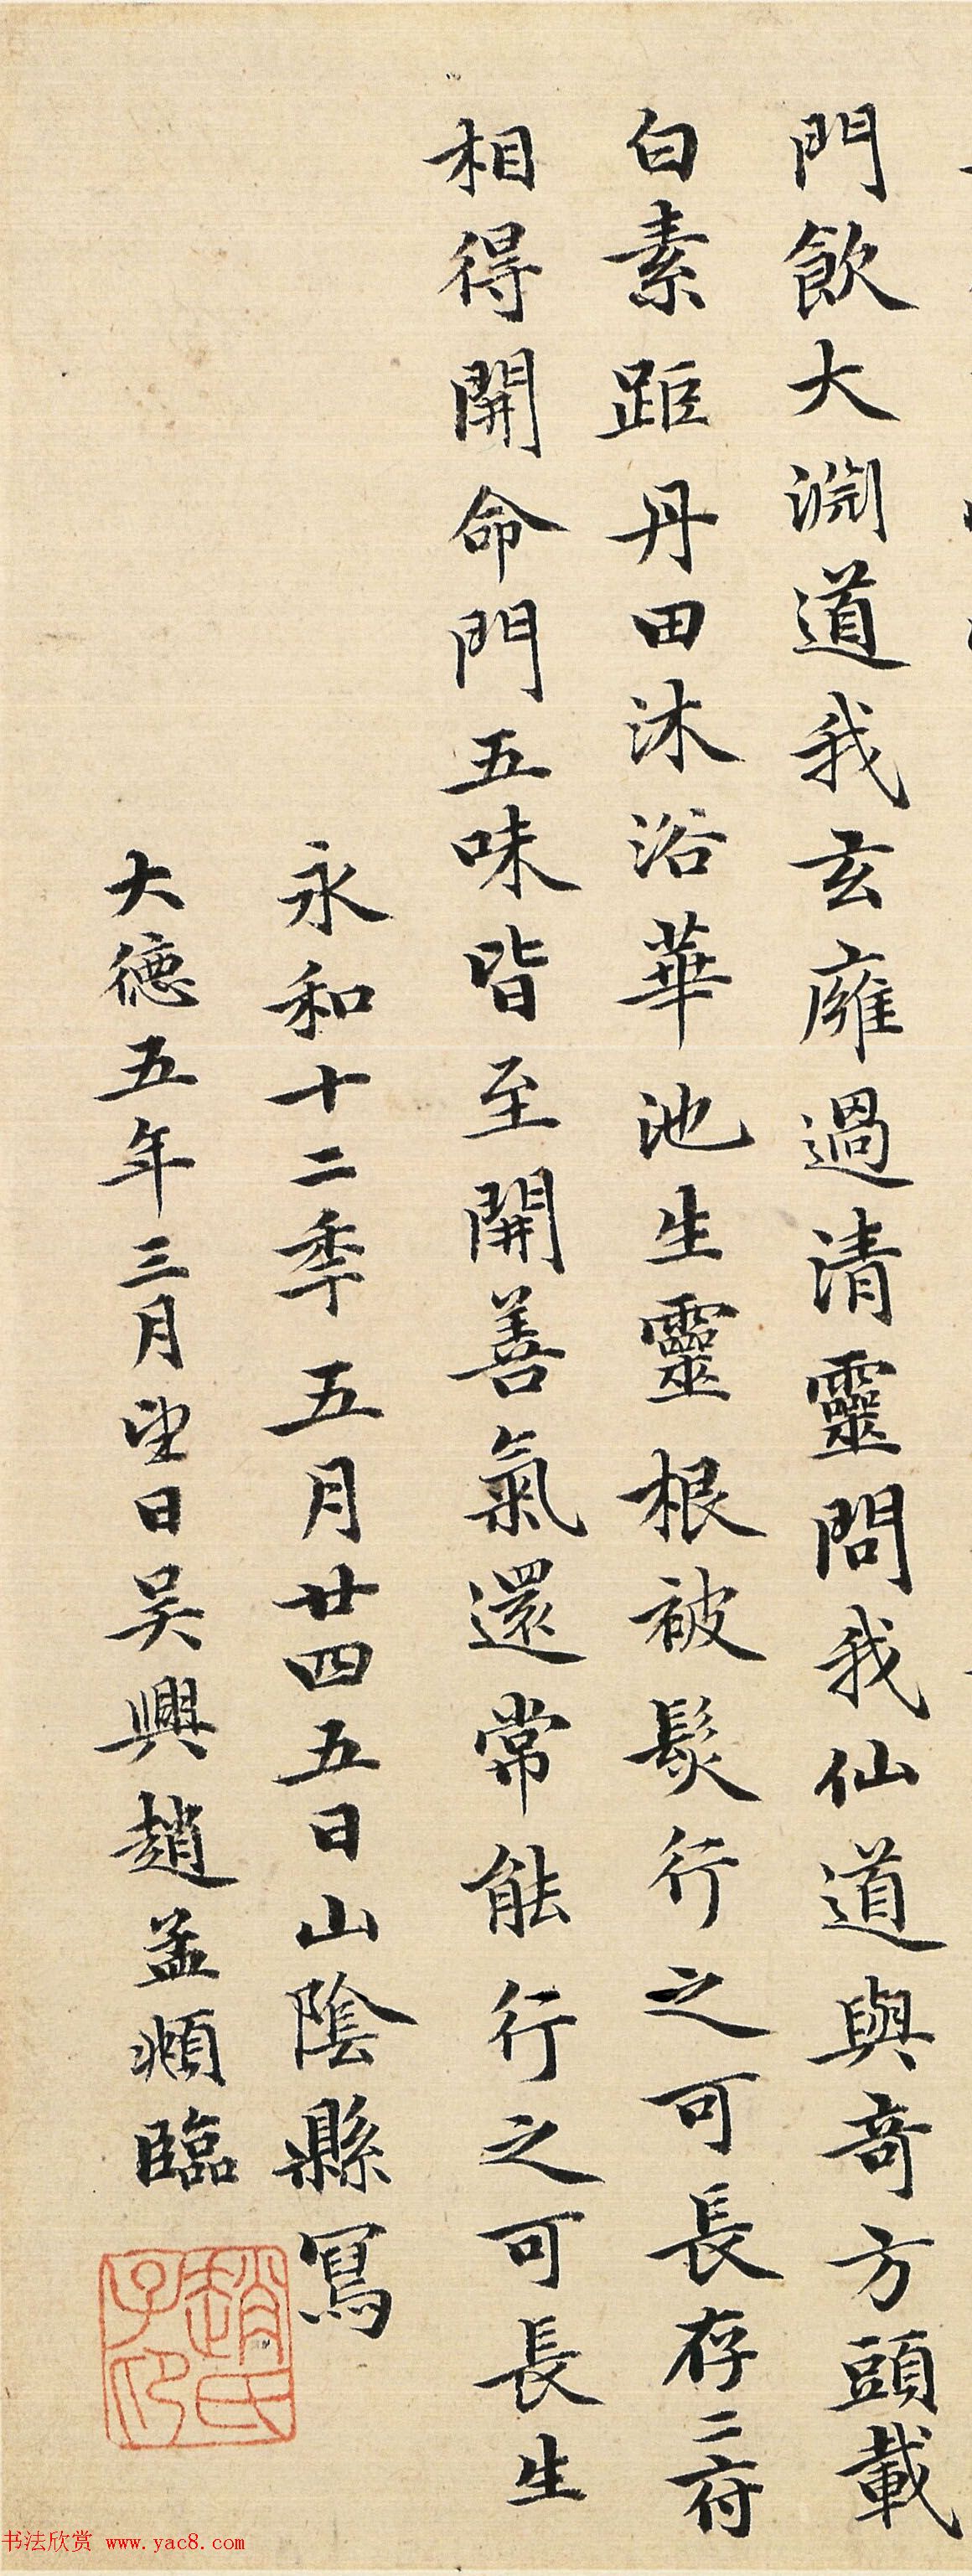 門飲大淵道我玄廱過清靈問我仙道與奇方頭載
白素距丹田沐浴華池生靈根被髮行之可長存二府
相得開命門五味皆至開善氣還常能行之可長生
永和十二秊五月廿四五日山陰縣寫
大德五年三月望日吴興趙孟頫臨
趙氏子印
书法欣赏 www.yac8.com